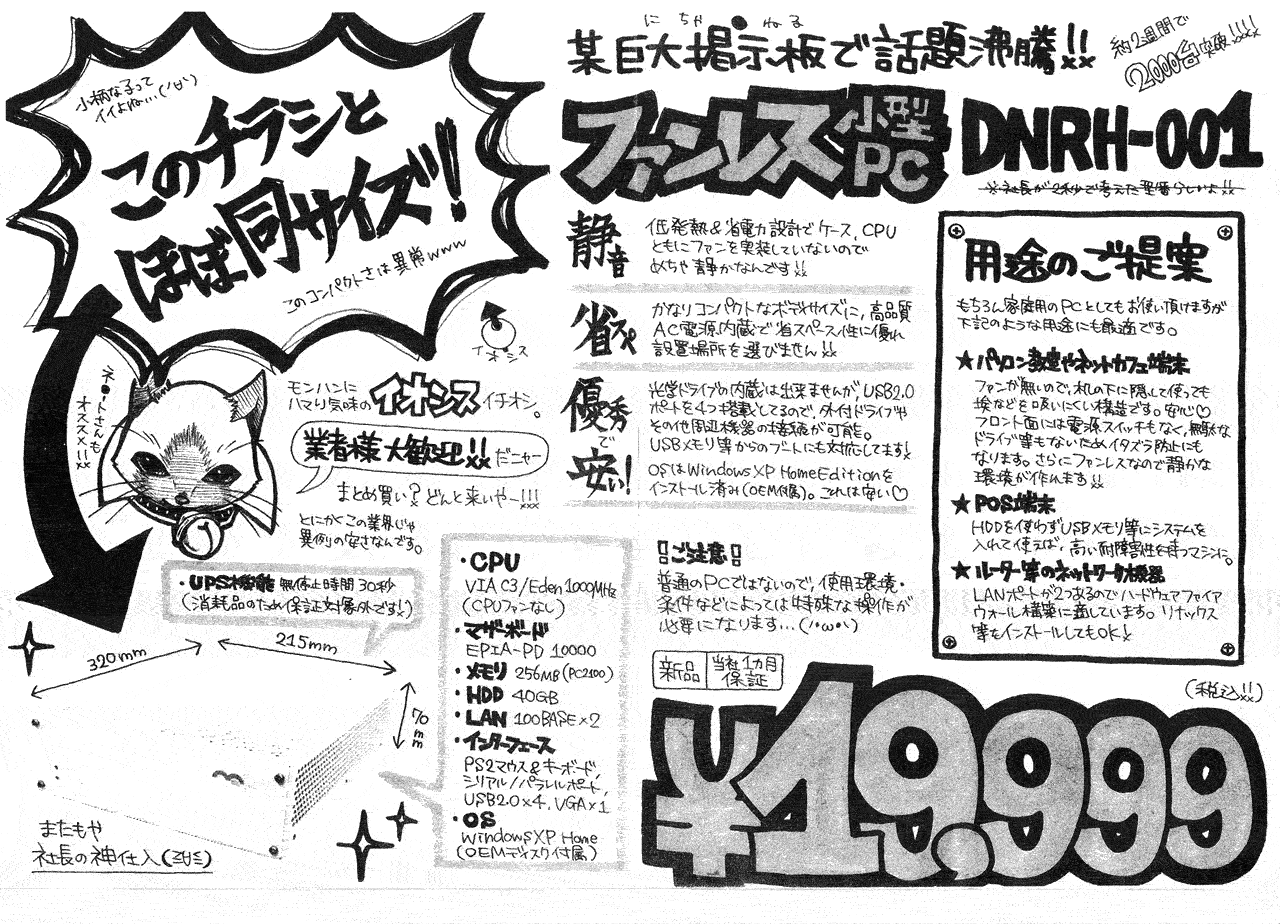 小柄な子って
イイよね…(ノ∀`)
このチラシと
ほぼ同サイズ!!
このコンパクトさは異常www
イオシス
ネ●トさんも
オススメ!!
モンハンに
ハマり気味の イオシス イチオシ。
業者様大歓迎!! だニャー
まとめ買い? どんと来いやー!!!
とにかくこの業界じゃ
異例の安さなんです。
・UPS機能 無停止時間30秒
(消耗品のため保証対象外です!)
320mm
215mm
70mm
またもや
社長の神仕入(ミ∀ミ)
・CPU
VIA C3/Eden 1000MHz
(CPUファンなし)
・マザーボード
EPIA-PD 10000
・メモリ 256MB(PC2100)
・HDD 40GB
・LAN 100BASE×2
・インターフェース
PS2マウス&キーボード,
シリアル/パラレルポート,
USB2.0×4, VGA×1
・OS
WindowsXP Home
(OEMディスク付属)
にちゃ●ねる
某巨大掲示板で話題沸騰!!
約2週間で
2000台突破!!!!
ファンレス小型PC DNRH-001
※社長が2秒で考えた型番らしいよ!!
静音
低発熱&省電力設計でケース、CPU
ともにファンを実装していないので
めちゃ静かなんです!!
省スペ
かなりコンパクトなボディサイズに,高品質
AC電源内蔵で省スペース性に優れ
設置場所を選びません!!
優秀で安い!
光学ドライブの内蔵は出来ませんが,USB2.0
ポートを4つ搭載してるので,外付ドライブや
その他周辺機器の接続が可能。
USBメモリ等からのブートにも対応してます!
OSはWindowsXP HomeEditionを
インストール済み(OEM付属)。これは安い♡
用途のご提案
もちろん家庭用のPCとしてもお使い頂けますが
下記のような用途にも最適です。
★パソコン教室やネットカフェ端末
ファンが無いので,机の下に隠して使っても
埃などを吸いにくい構造です。安心♡
フロント面には電源スイッチもなく,無駄な
ドライブ等もないためイタズラ防止にも
なります。さらにファンレスなので静かな
環境が作れます!!
★POS端末
HDDを使わずUSBメモリ等にシステムを
入れて使えば,高い耐障害性を持つマシンに。
★ルーター等のネットワーク機器
LANポートが2つあるのでハードウェアファイア
ウォール構築に適しています。リナックス
等をインストールしてもOK!
!!ご注意!!
普通のPCではないので,使用環境・
条件などによっては特殊な操作が
必要になります…(/・ω・\)
新品 当社1カ月保証
(税込!!)
¥19,999